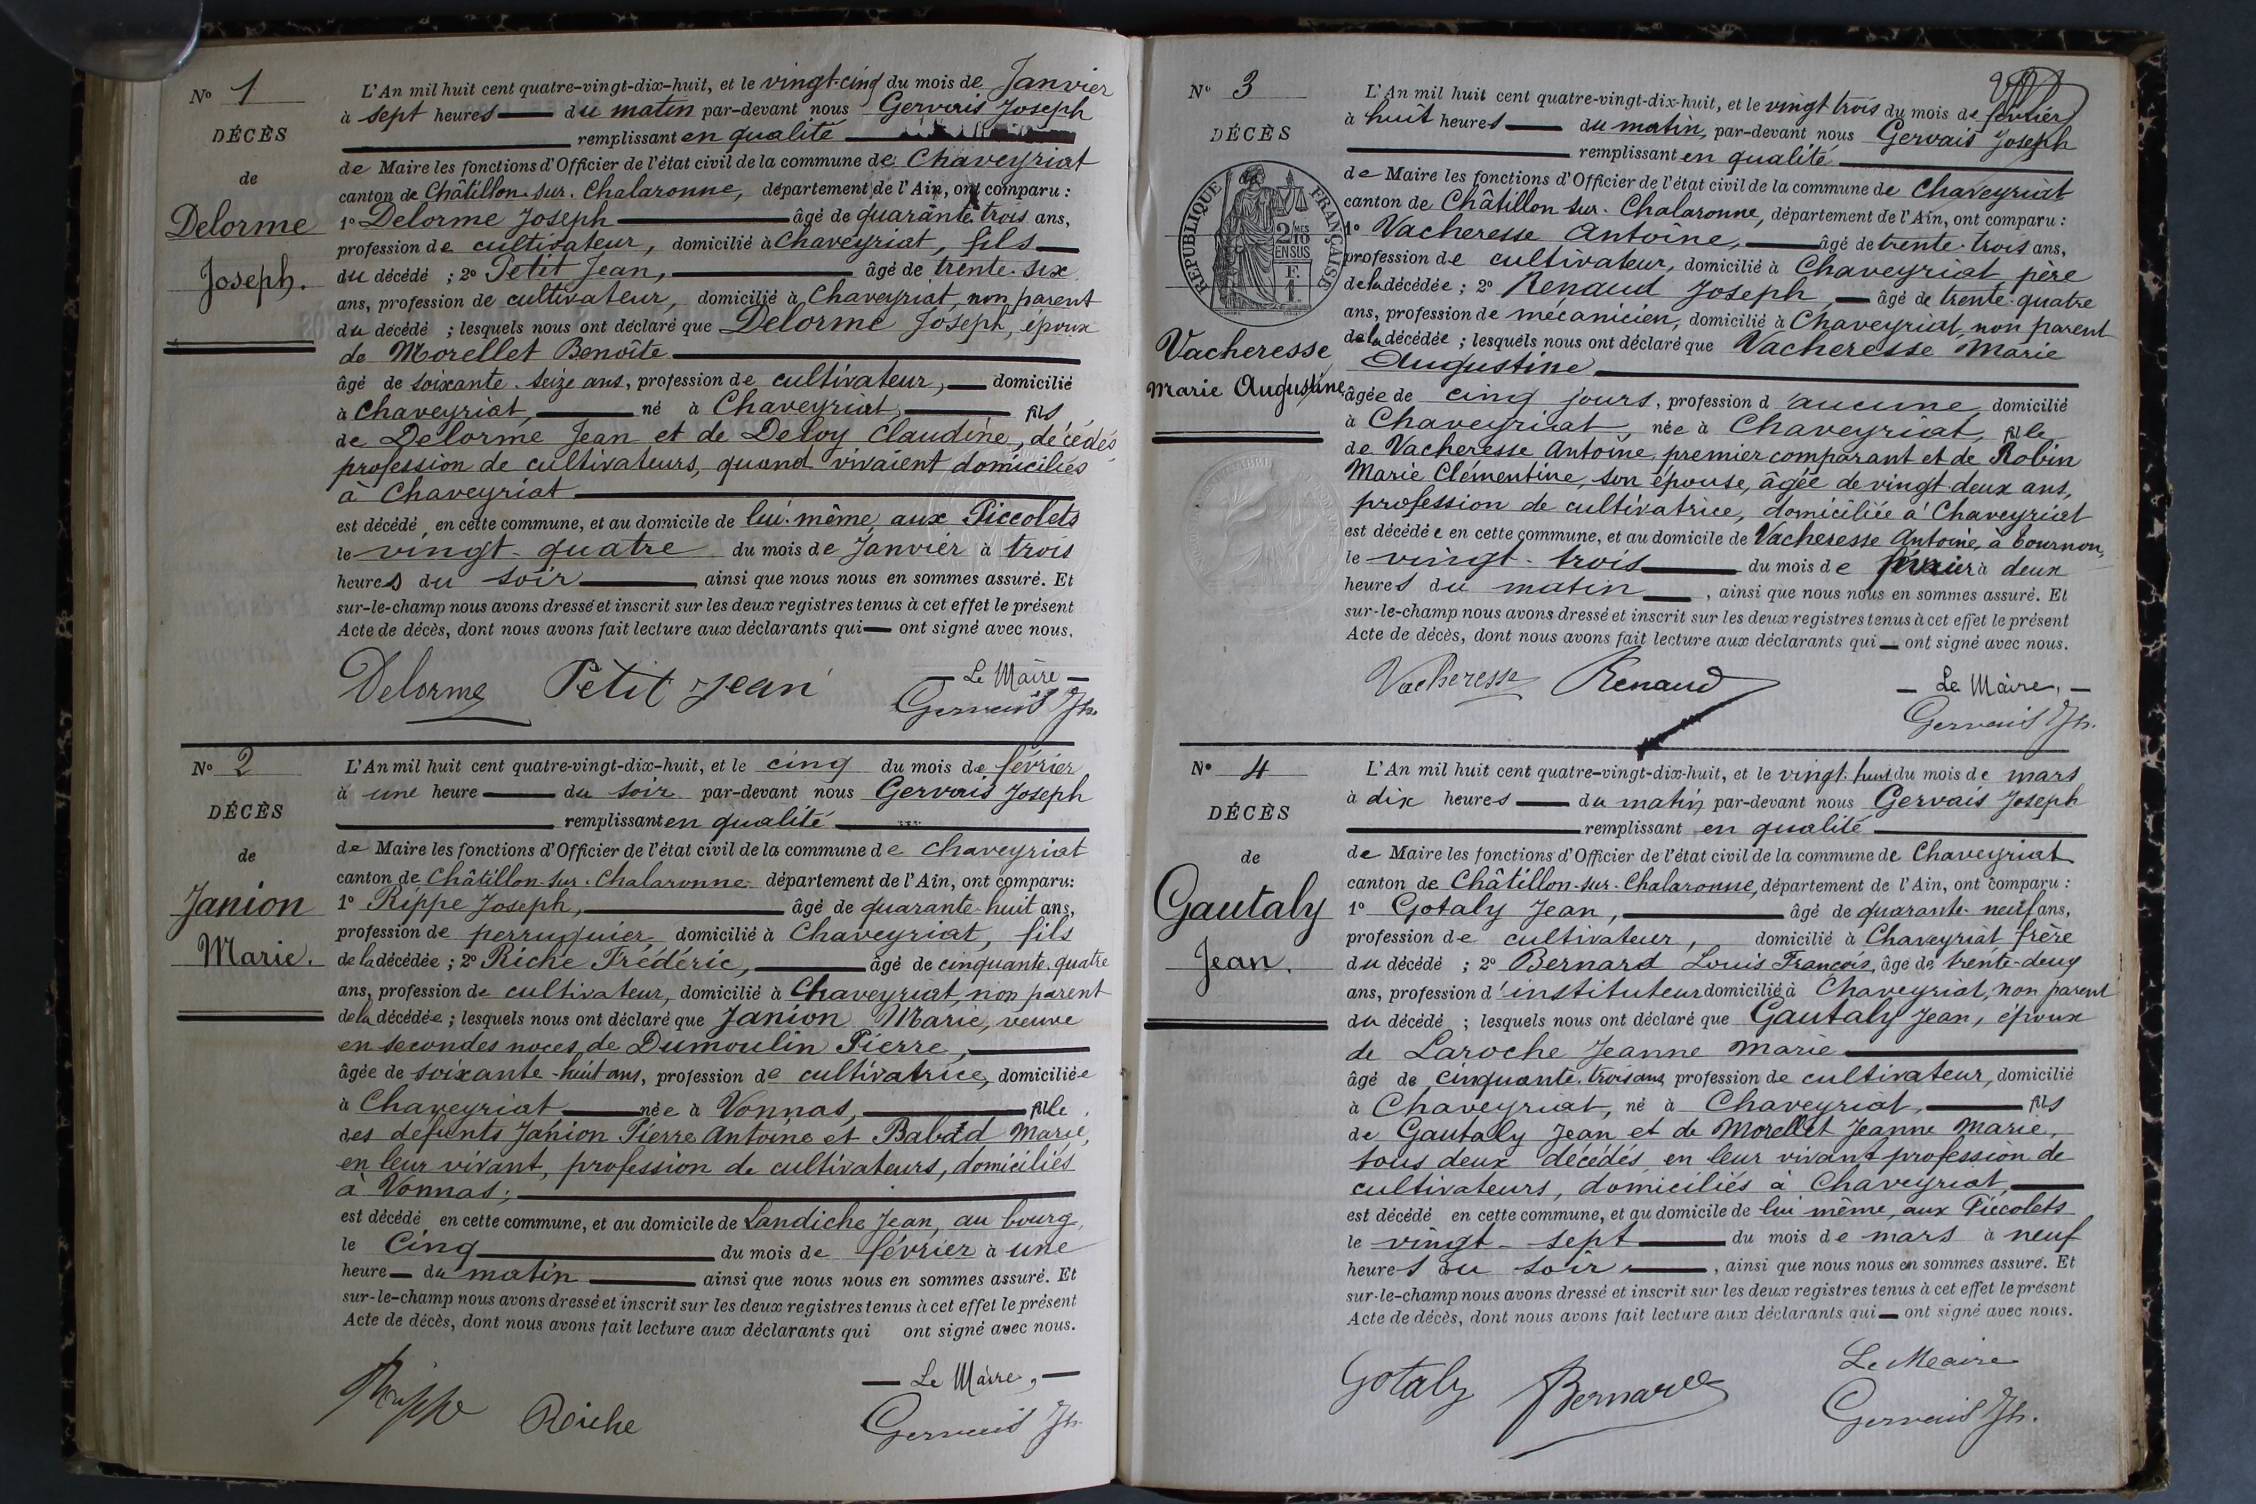 N° 1
DÉCÈS
de
Delorme
Joseph.
L'An mil huit cent quatre-vingt-dix-huit, et le vingt-cinq du mois de Janvier
à sept heures du matin par-devant nous Gervais Joseph
remplissant en qualité
de Maire les fonctions d'Officier de l'état civil de la commune de Chaveyriat
canton de Châtillon-sur-Chalaronne, département de l'Ain, ont comparu :
1° Delorme Joseph âgé de quarante trois ans,
profession de cultivateur, domicilié à Chaveyriat, fils
du décédé ; 2° Petit Jean, âgé de trente-six
ans, profession de cultivateur, domicilié à Chaveyriat, non parent
du décédé ; lesquels nous ont déclaré que Delorme Joseph, époux
de Morellet Benoîte
âgé de soixante-seize ans, profession de cultivateur, domicilié
à Chaveyriat, né à Chaveyriat, fils
de Delorme Jean et de Deloy Claudine, décédés
profession de cultivateurs, quand vivaient domiciliés
à Chaveyriat
est décédé en cette commune, et au domicile de lui-même, aux Piccolets
le vingt-quatre du mois de Janvier à trois
heures du soir ainsi que nous nous en sommes assuré. Et
sur-le-champ nous avons dressé et inscrit sur les deux registres tenus à cet effet le présent
Acte de décès, dont nous avons fait lecture aux déclarants qui ont signé avec nous.
Delorme Petit Jean
Le Maire
Gervais Jh.
N° 2
DÉCÈS
de
Janion
Marie.
L'An mil huit cent quatre-vingt-dix-huit, et le cinq du mois de février
à une heure du soir par-devant nous Gervais Joseph
remplissant en qualité
de Maire les fonctions d'Officier de l'état civil de la commune de Chaveyriat
canton de Châtillon-sur-Chalaronne département de l'Ain, ont comparu:
1° Rippe Joseph, âgé de quarante-huit ans,
profession de perruquier domicilié à Chaveyriat, fils
de la décédée ; 2° Riche Frédéric, âgé de cinquante-quatre
ans, profession de cultivateur, domicilié à Chaveyriat, non parent
de la décédée ; lesquels nous ont déclaré que Janion Marie, veuve
en secondes noces de Dumoulin Pierre,
âgée de soixante-huit ans, profession de cultivatrice, domiciliée
à Chaveyriat née à Vonnas, fille
des défunts Janion Pierre Antoine et Babad Marie,
en leur vivant, profession de cultivateurs, domiciliés
à Vonnas,
est décédé en cette commune, et au domicile de Landiche Jean, au bourg,
le Cinq du mois de février à une
heure du matin ainsi que nous nous en sommes assuré. Et
sur-le-champ nous avons dressé et inscrit sur les deux registres tenus à cet effet le présent
Acte de décès, dont nous avons fait lecture aux déclarants qui ont signé avec nous.
Rippe Riche
Le Maire,
Gervais Jh.
N° 3
DÉCÈS
RÉPUBLIQUE FRANÇAISE
2/10 MES
EN SUS
F.
1
Vacheresse
Marie Augustine
L'An mil huit cent quatre-vingt-dix-huit, et le vingt trois du mois de février
à huit heures du matin, par-devant nous Gervais Joseph
remplissant en qualité
de Maire les fonctions d'Officier de l'état civil de la commune de Chaveyriat
canton de Châtillon-sur-Chalaronne, département de l'Ain, ont comparu :
1° Vacheresse Antoine, âgé de trente-trois ans,
profession de cultivateur, domicilié à Chaveyriat père
de la décédée ; 2° Renaud Joseph, âgé de trente-quatre
ans, profession de mécanicien, domicilié à Chaveyriat, non parent
de la décédée ; lesquels nous ont déclaré que Vacheresse Marie
Augustine
âgée de cinq jours, profession d'aucune domicilié
à Chaveyriat, née à Chaveyriat, fille
de Vacheresse Antoine, premier comparant et de Robin
Marie Clémentine, son épouse, âgée de vingt-deux ans,
profession de cultivatrice, domiciliée à Chaveyriat
est décédée en cette commune, et au domicile de Vacheresse Antoine, à Tournon,
le vingt-trois du mois de février à deux
heures du matin, ainsi que nous nous en sommes assuré. Et
sur-le-champ nous avons dressé et inscrit sur les deux registres tenus à cet effet le présent
Acte de décès, dont nous avons fait lecture aux déclarants qui ont signé avec nous.
Vacheresse Renaud
Le Maire,
Gervais Jh.
N° 4
DÉCÈS
de
Gautaly
Jean.
L'An mil huit cent quatre-vingt-dix-huit, et le vingt-huit du mois de mars
à dix heures du matin par-devant nous Gervais Joseph
remplissant en qualité
de Maire les fonctions d'Officier de l'état civil de la commune de Chaveyriat
canton de Châtillon-sur-Chalaronne, département de l'Ain, ont comparu :
1° Gotaly Jean, âgé de quarante-neuf ans,
profession de cultivateur, domicilié à Chaveyriat frère
du décédé ; 2° Bernard Louis François, âgé de trente-deux
ans, profession d'instituteur domicilié à Chaveyriat, non parent
du décédé ; lesquels nous ont déclaré que Gautaly Jean, époux
de Laroche Jeanne Marie
âgé de cinquante-trois ans profession de cultivateur, domicilié
à Chaveyriat, né à Chaveyriat, fils
de Gautaly Jean et de Morellet Jeanne Marie,
tous deux décédés en leur vivant profession de
cultivateurs, domiciliés à Chaveyriat,
est décédé en cette commune, et au domicile de lui-même, aux Piccolets
le vingt-sept du mois de mars à neuf
heures du soir, ainsi que nous nous en sommes assuré. Et
sur-le-champ nous avons dressé et inscrit sur les deux registres tenus à cet effet le présent
Acte de décès, dont nous avons fait lecture aux déclarants qui ont signé avec nous.
Gotaly Bernard
Le Maire
Gervais Jh.